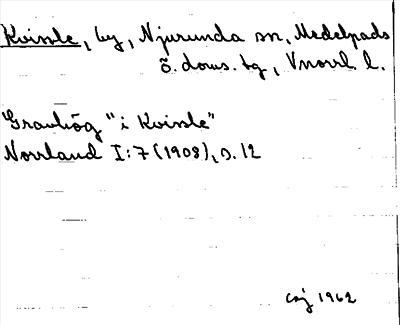 Kvissle, by, Njurunda sn, Medelpads
ö. doms. tg, Vnorrl. l.
Gravhög "i Kvissle"
Norrland I:7 (1908), s. 12
CGJ 1962